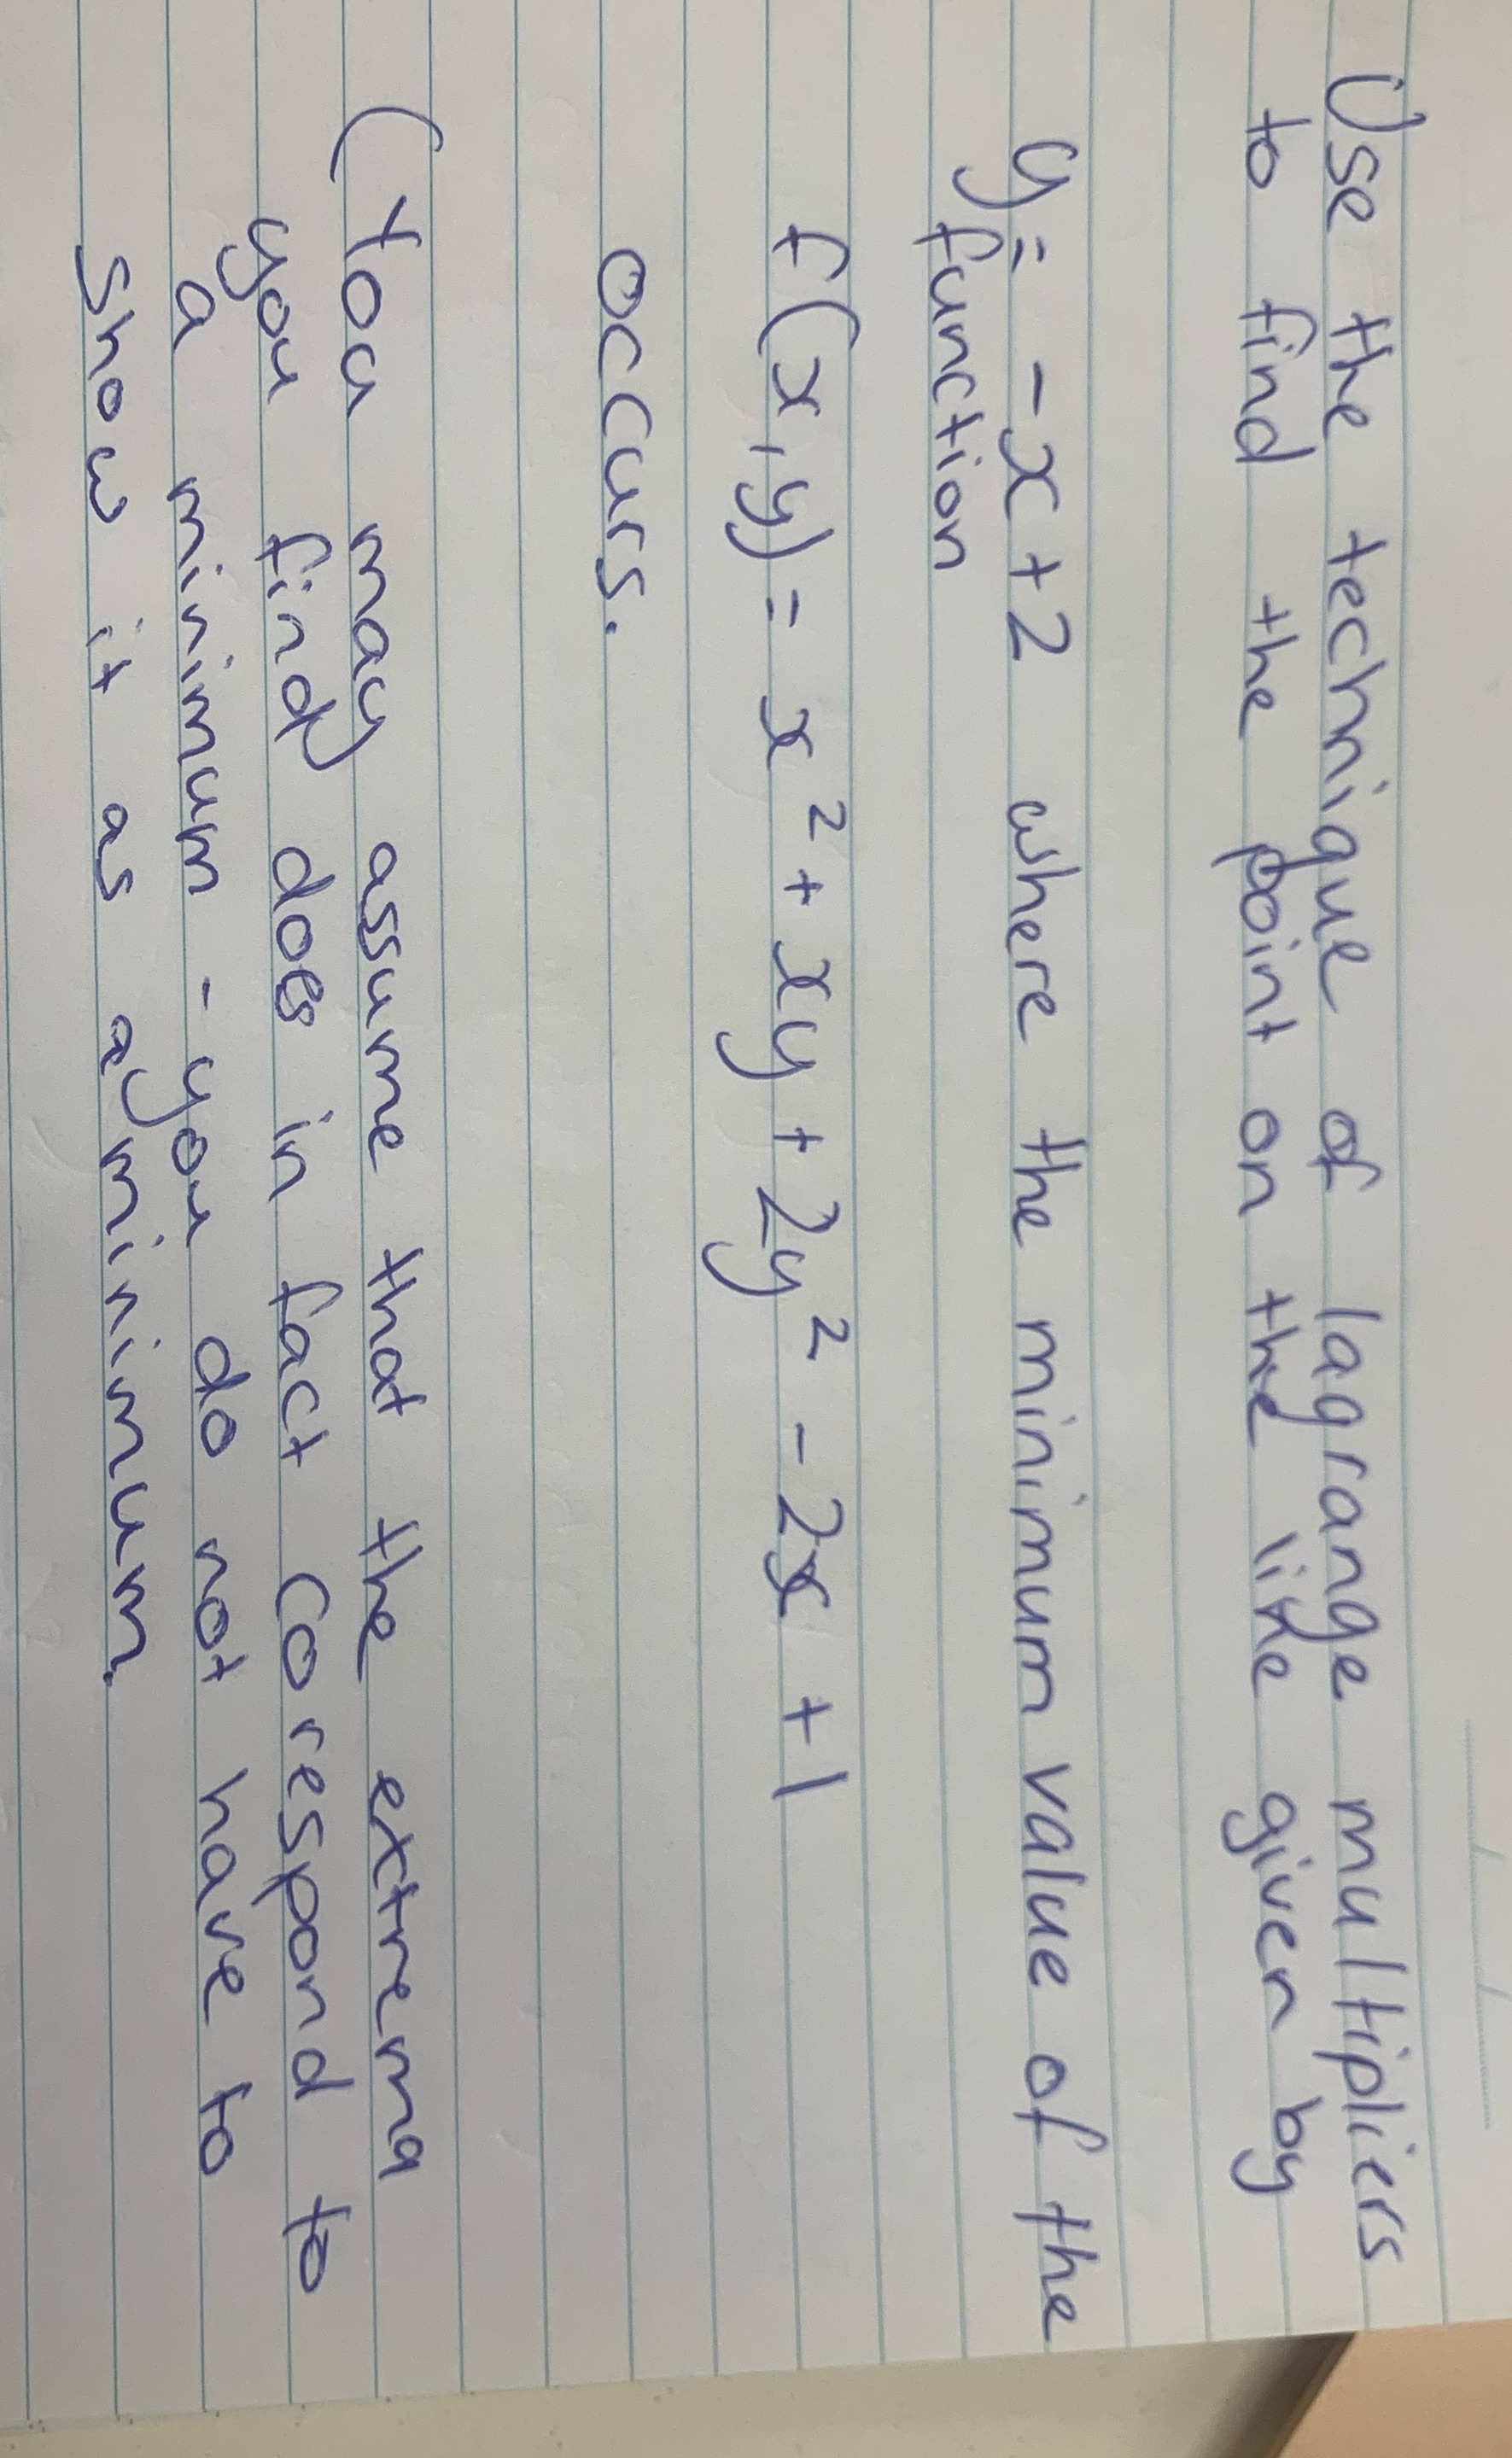 Use the technique of lagrange multipliers
to find the point on the line given by
y = -x+2 where the minimum value of the
function
f(x,y) = x² + xy + 2y² - 2x + 1
occurs.
(You may assume that the extrema
you find does in fact correspond to
a minimum - you do not have to
show it as a minimum.